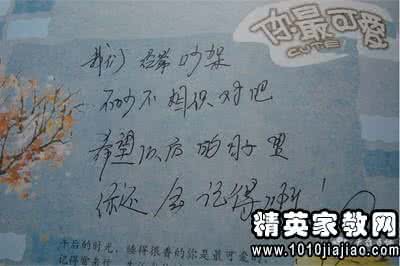 你最可爱
CUTE
我们经常吵架
不吵不相识对吧
希望以后的日子里
你还会记得我!
午后的时光，睡得很香的你是最可爱
记得常来信
精英家教网
www.1010jiajiao.com